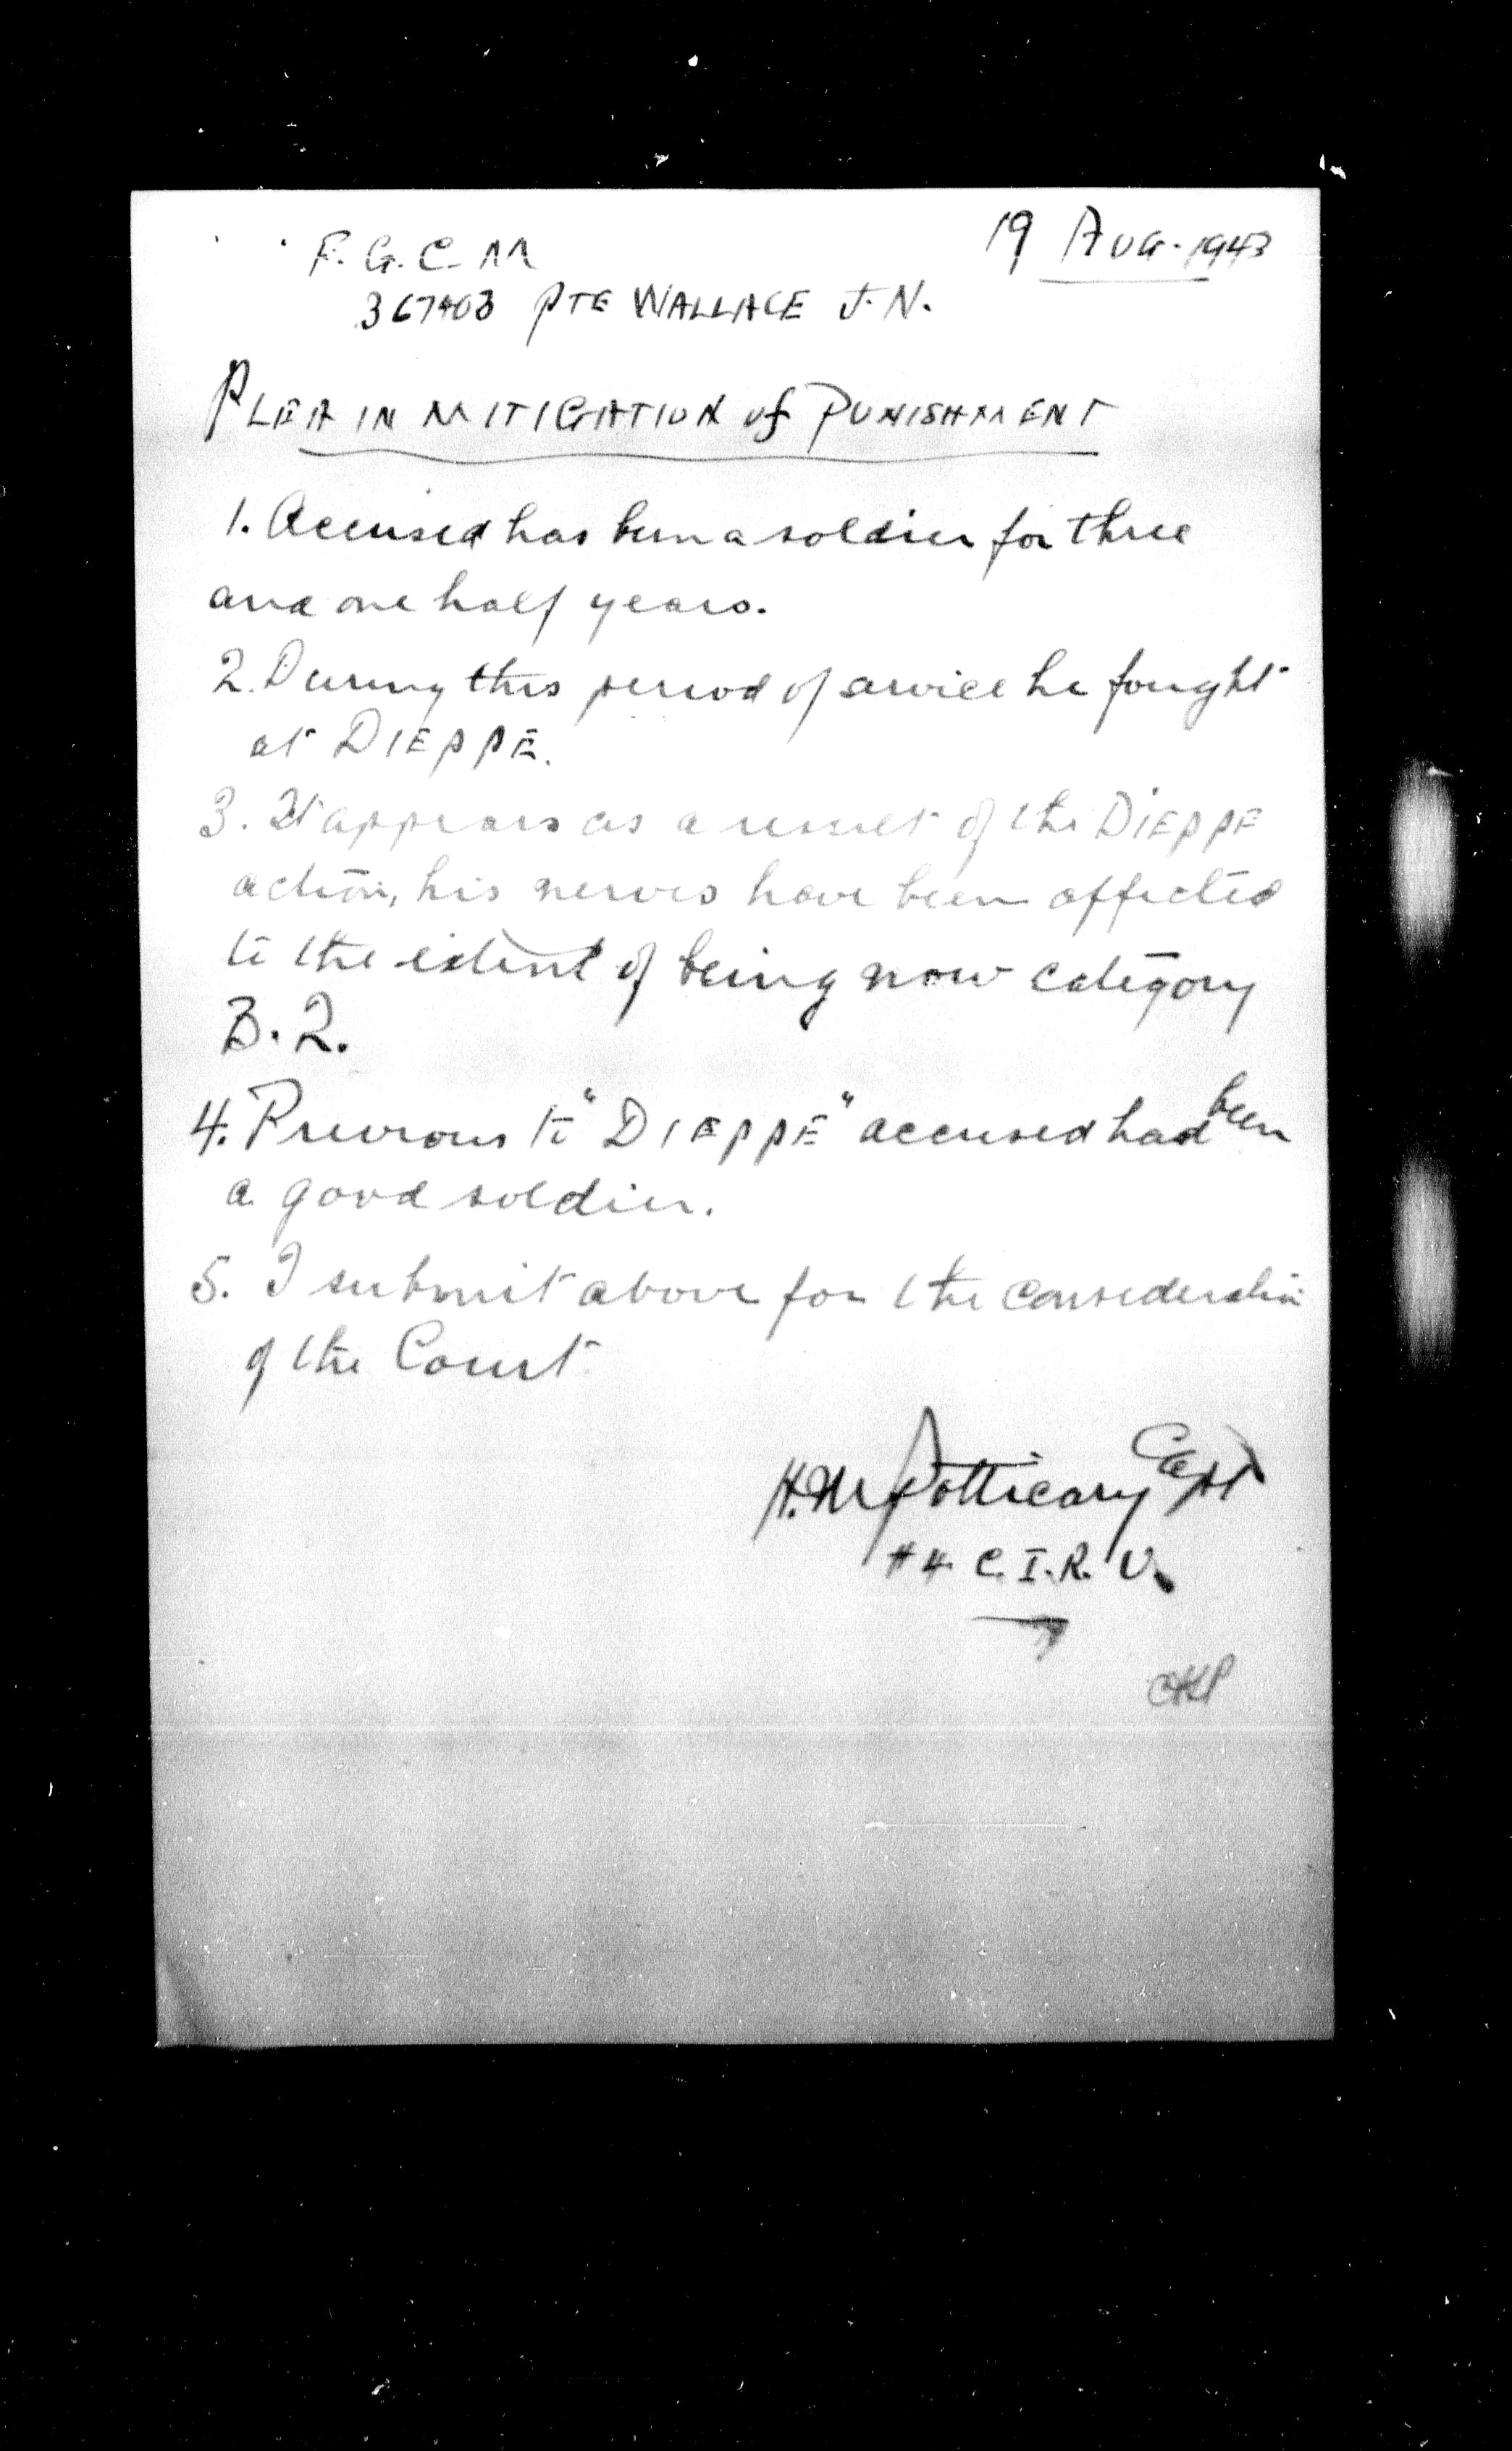 F. G. C. M
19 AUG. 1943
367403 PTE WALLACE J. N.
PLEA IN MITIGATION of PUNISHMENT
1. Accused has been a soldier for three
and one half years.
2. During this period of service he fought
at DIEPPE.
3. It appears as a result of the DIEPPE
action, his nerves have been affected
to the extent of being now category
B. 2.
4. Previous to "DIEPPE" accused had been
a good soldier.
5. I submit above for the consideration
of the Court
H. M. Potticary Capt
#4 C. I. R. U.